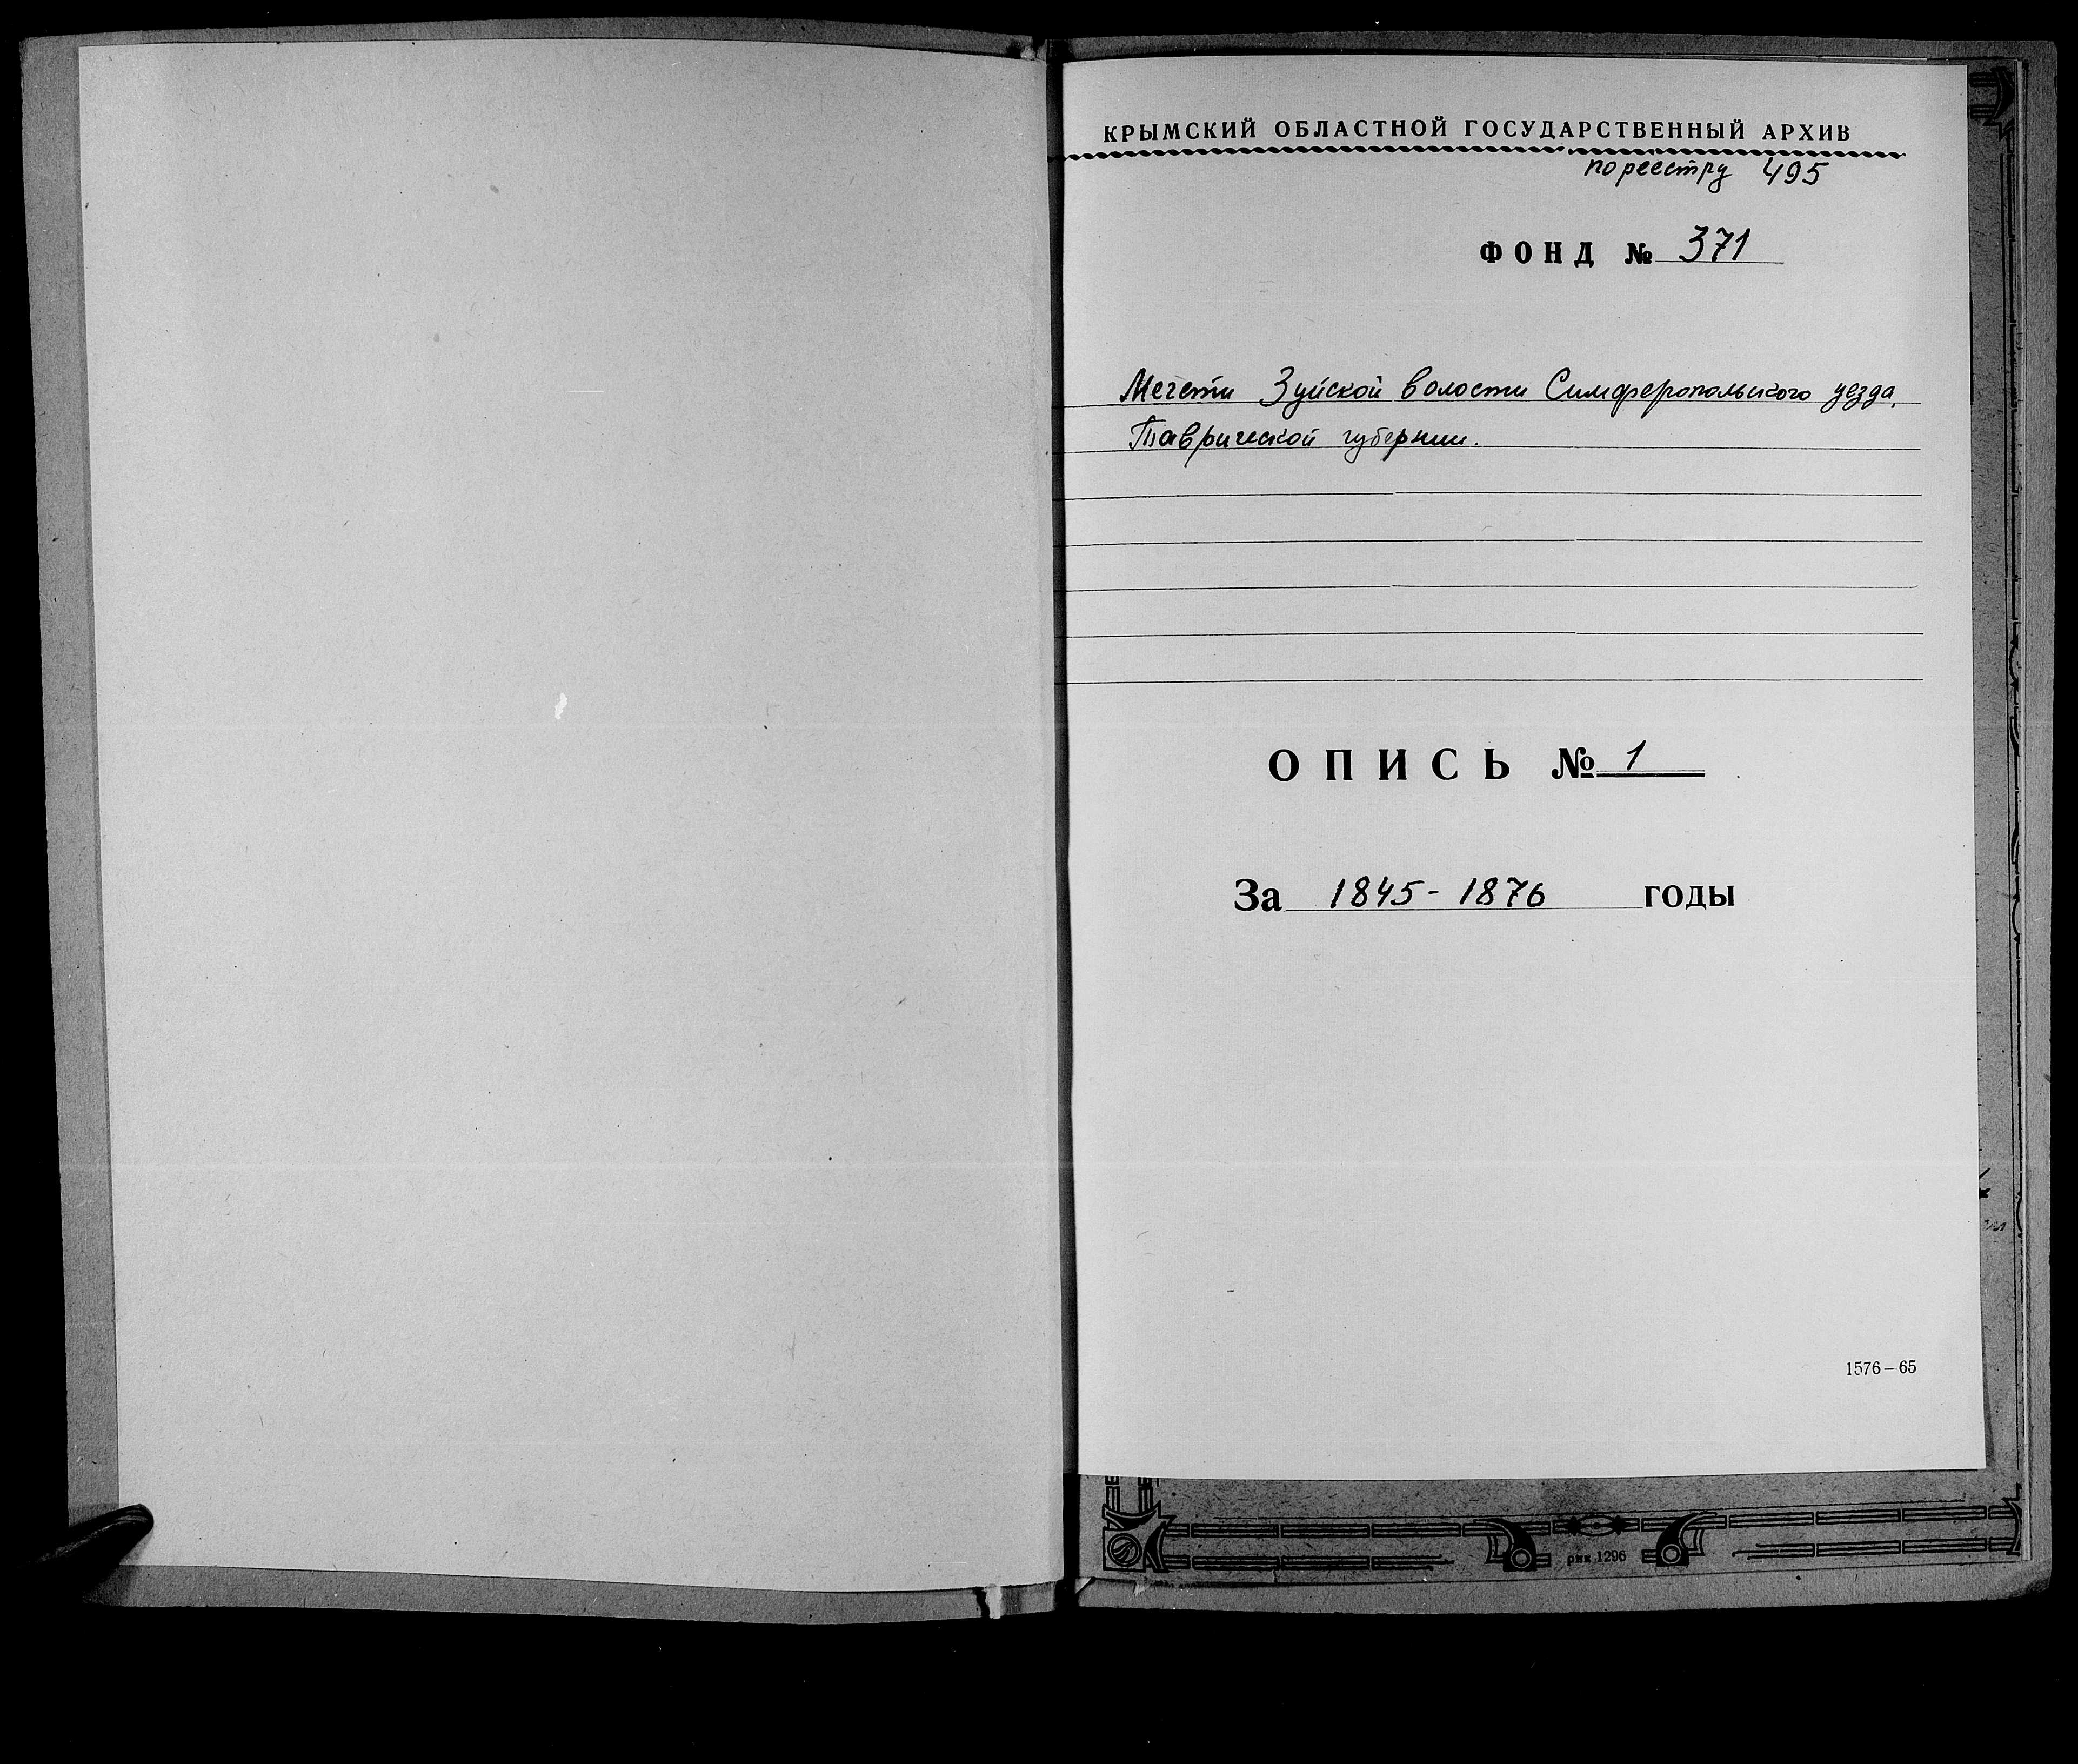 КРЫМСКИЙ ОБЛАСТНОЙ ГОСУДАРСТВЕННЫЙ АРХИВ
по реестру 495
ФОНД № 371
Мечети Зуйской волости Симферопольского уезда,
Таврической губернии.
ОПИСЬ № 1
За 1845-1876 годы
1576-65
рнк 1296